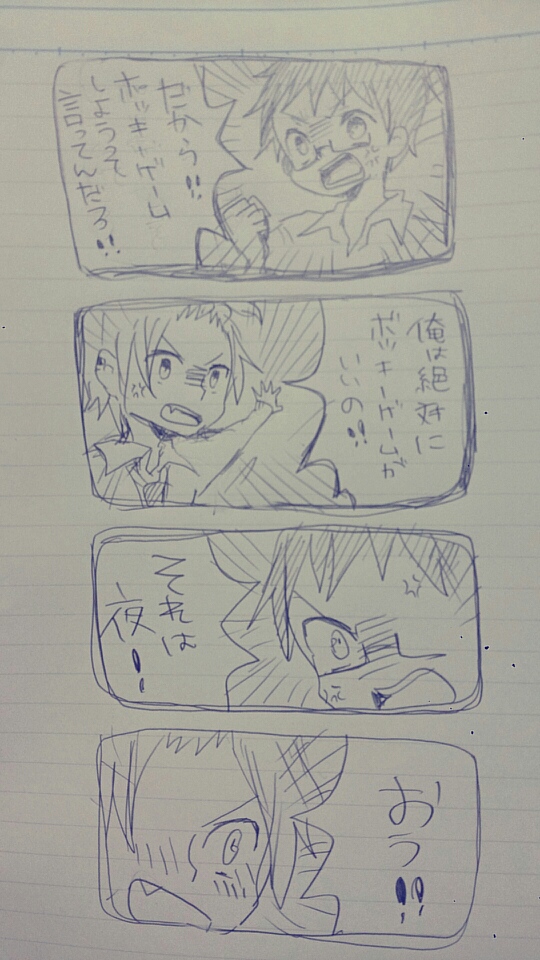 だから!!
ポッキーゲーム
しようって
言ってんだろ!!
俺は絶対に
ボッキーゲームが
いいの!!
それは
夜!
おう!!